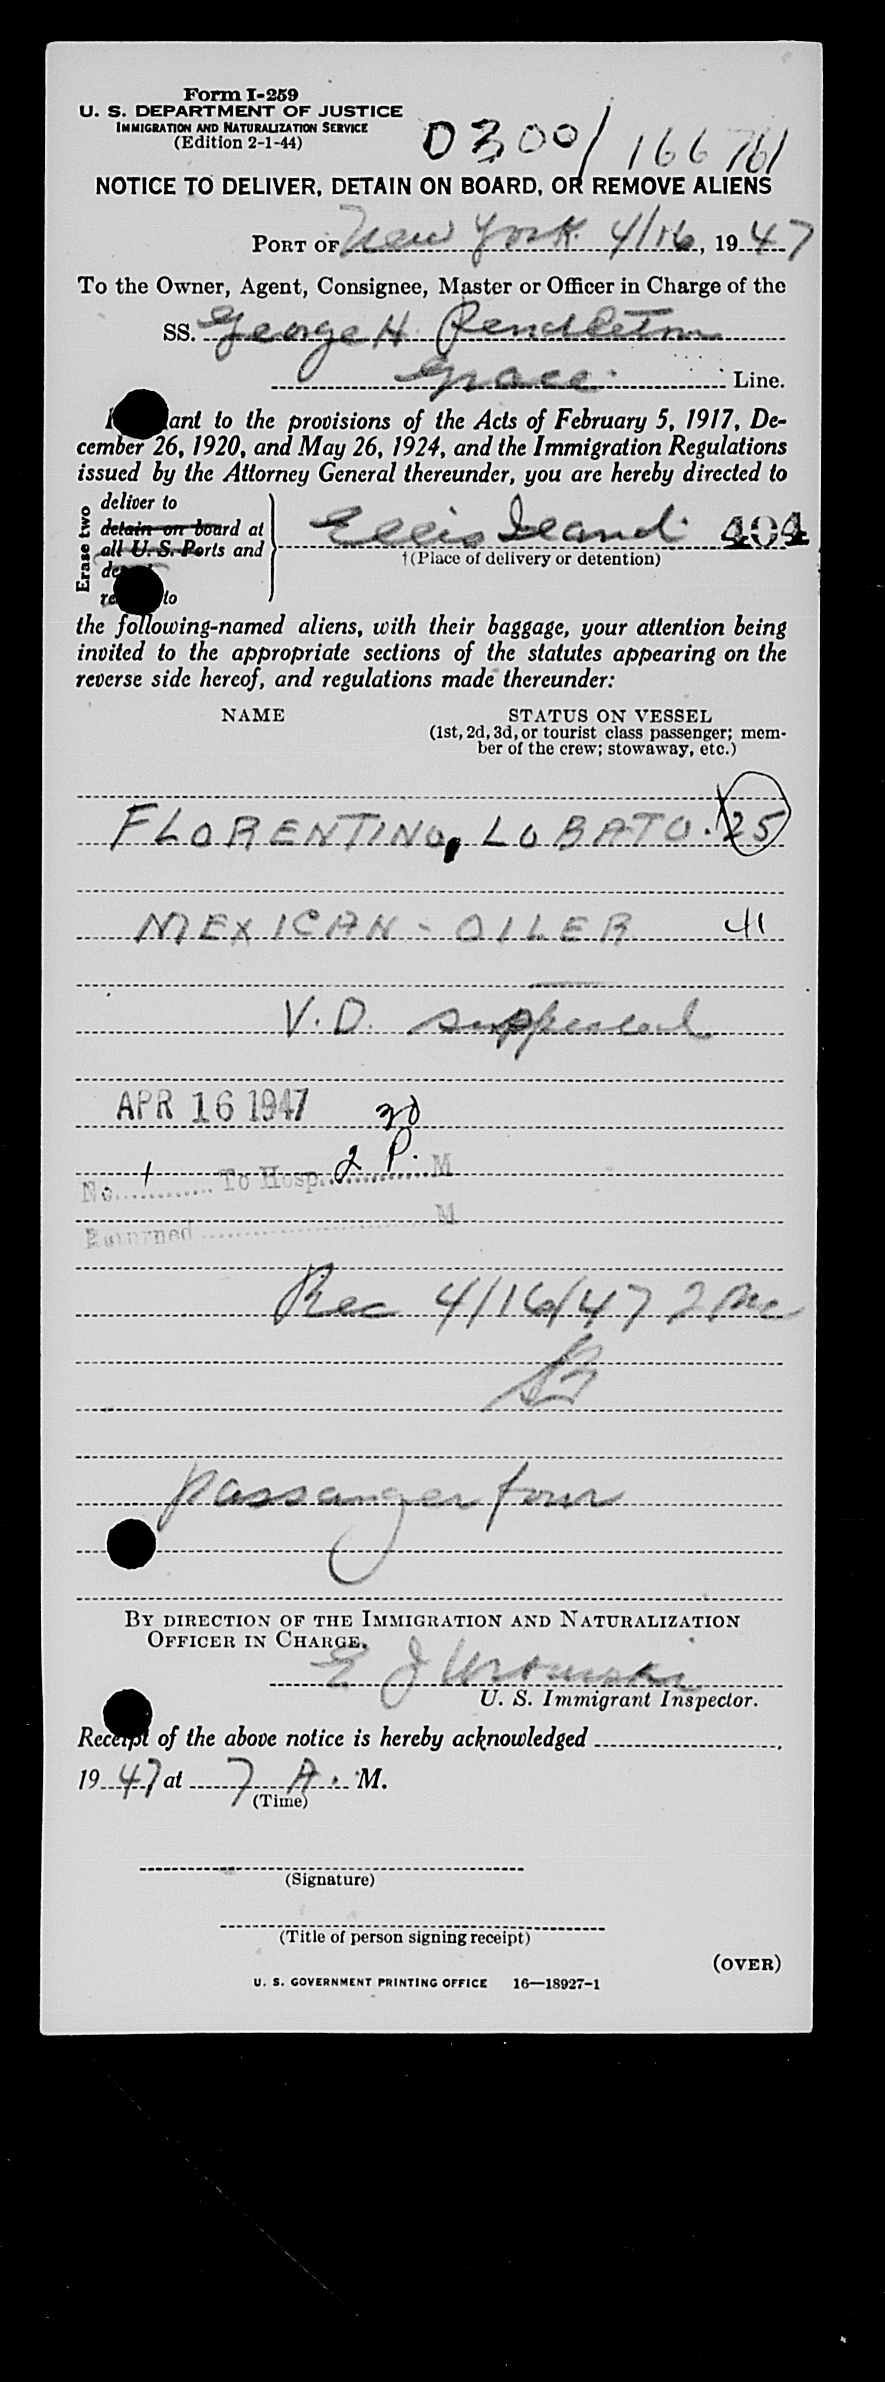 Form I-259
U. S. DEPARTMENT OF JUSTICE
IMMIGRATION AND NATURALIZATION SERVICE
(Edition 2-1-44)
0300/166761
NOTICE TO DELIVER, DETAIN ON BOARD, OR REMOVE ALIENS
PORT OF New York. 4/16, 1947
To the Owner, Agent, Consignee, Master or Officer in Charge of the
SS. George H. Pendleton
Grace Line.
ant to the provisions of the Acts of February 5, 1917, De-
cember 26, 1920, and May 26, 1924, and the Immigration Regulations
issued by the Attorney General thereunder, you are hereby directed to
Erase two
deliver to
detain on board at
all U. S. Ports and
to
Ellis Island 404
†(Place of delivery or detention)
the following-named aliens, with their baggage, your attention being
invited to the appropriate sections of the statutes appearing on the
reverse side hereof, and regulations made thereunder:
NAME STATUS ON VESSEL
(1st, 2d, 3d, or tourist class passenger; mem-
ber of the crew; stowaway, etc.)
FLORENTINO, LOBATO. 25
MEXICAN - OILER 41
V.D.
APR 16 1947
No. 1 To Hosp. 2 P. M
Returned M
Rec 4/16/47 2
passanger four
BY DIRECTION OF THE IMMIGRATION AND NATURALIZATION
OFFICER IN CHARGE.
E J
U. S. Immigrant Inspector.
Receipt of the above notice is hereby acknowledged
1947 at 7 A. M.
(Time)
(Signature)
(Title of person signing receipt)
(OVER)
U. S. GOVERNMENT PRINTING OFFICE 16—18927-1